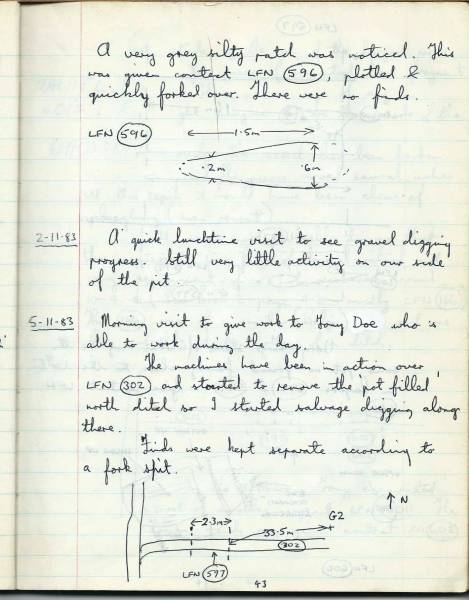 A very grey silty patch was noticed. This
was given context LFN 596, plotted &
quickly forked over. There were no finds.
LFN 596
1.5m
.2m
.6m
2-11-83
A quick lunchtime visit to see gravel digging
progress. Still very little activity on our side
of the pit.
5-11-83
Morning visit to give work to Tony Doe who is
able to work during the day.
The machines have been in action over
LFN 302 and started to remove the pot filled
north ditch so I started salvage digging along
there.
Finds were kept separate according to
a fork spit.
N
2.3m
G2
33.5m
302
LFN 597
43